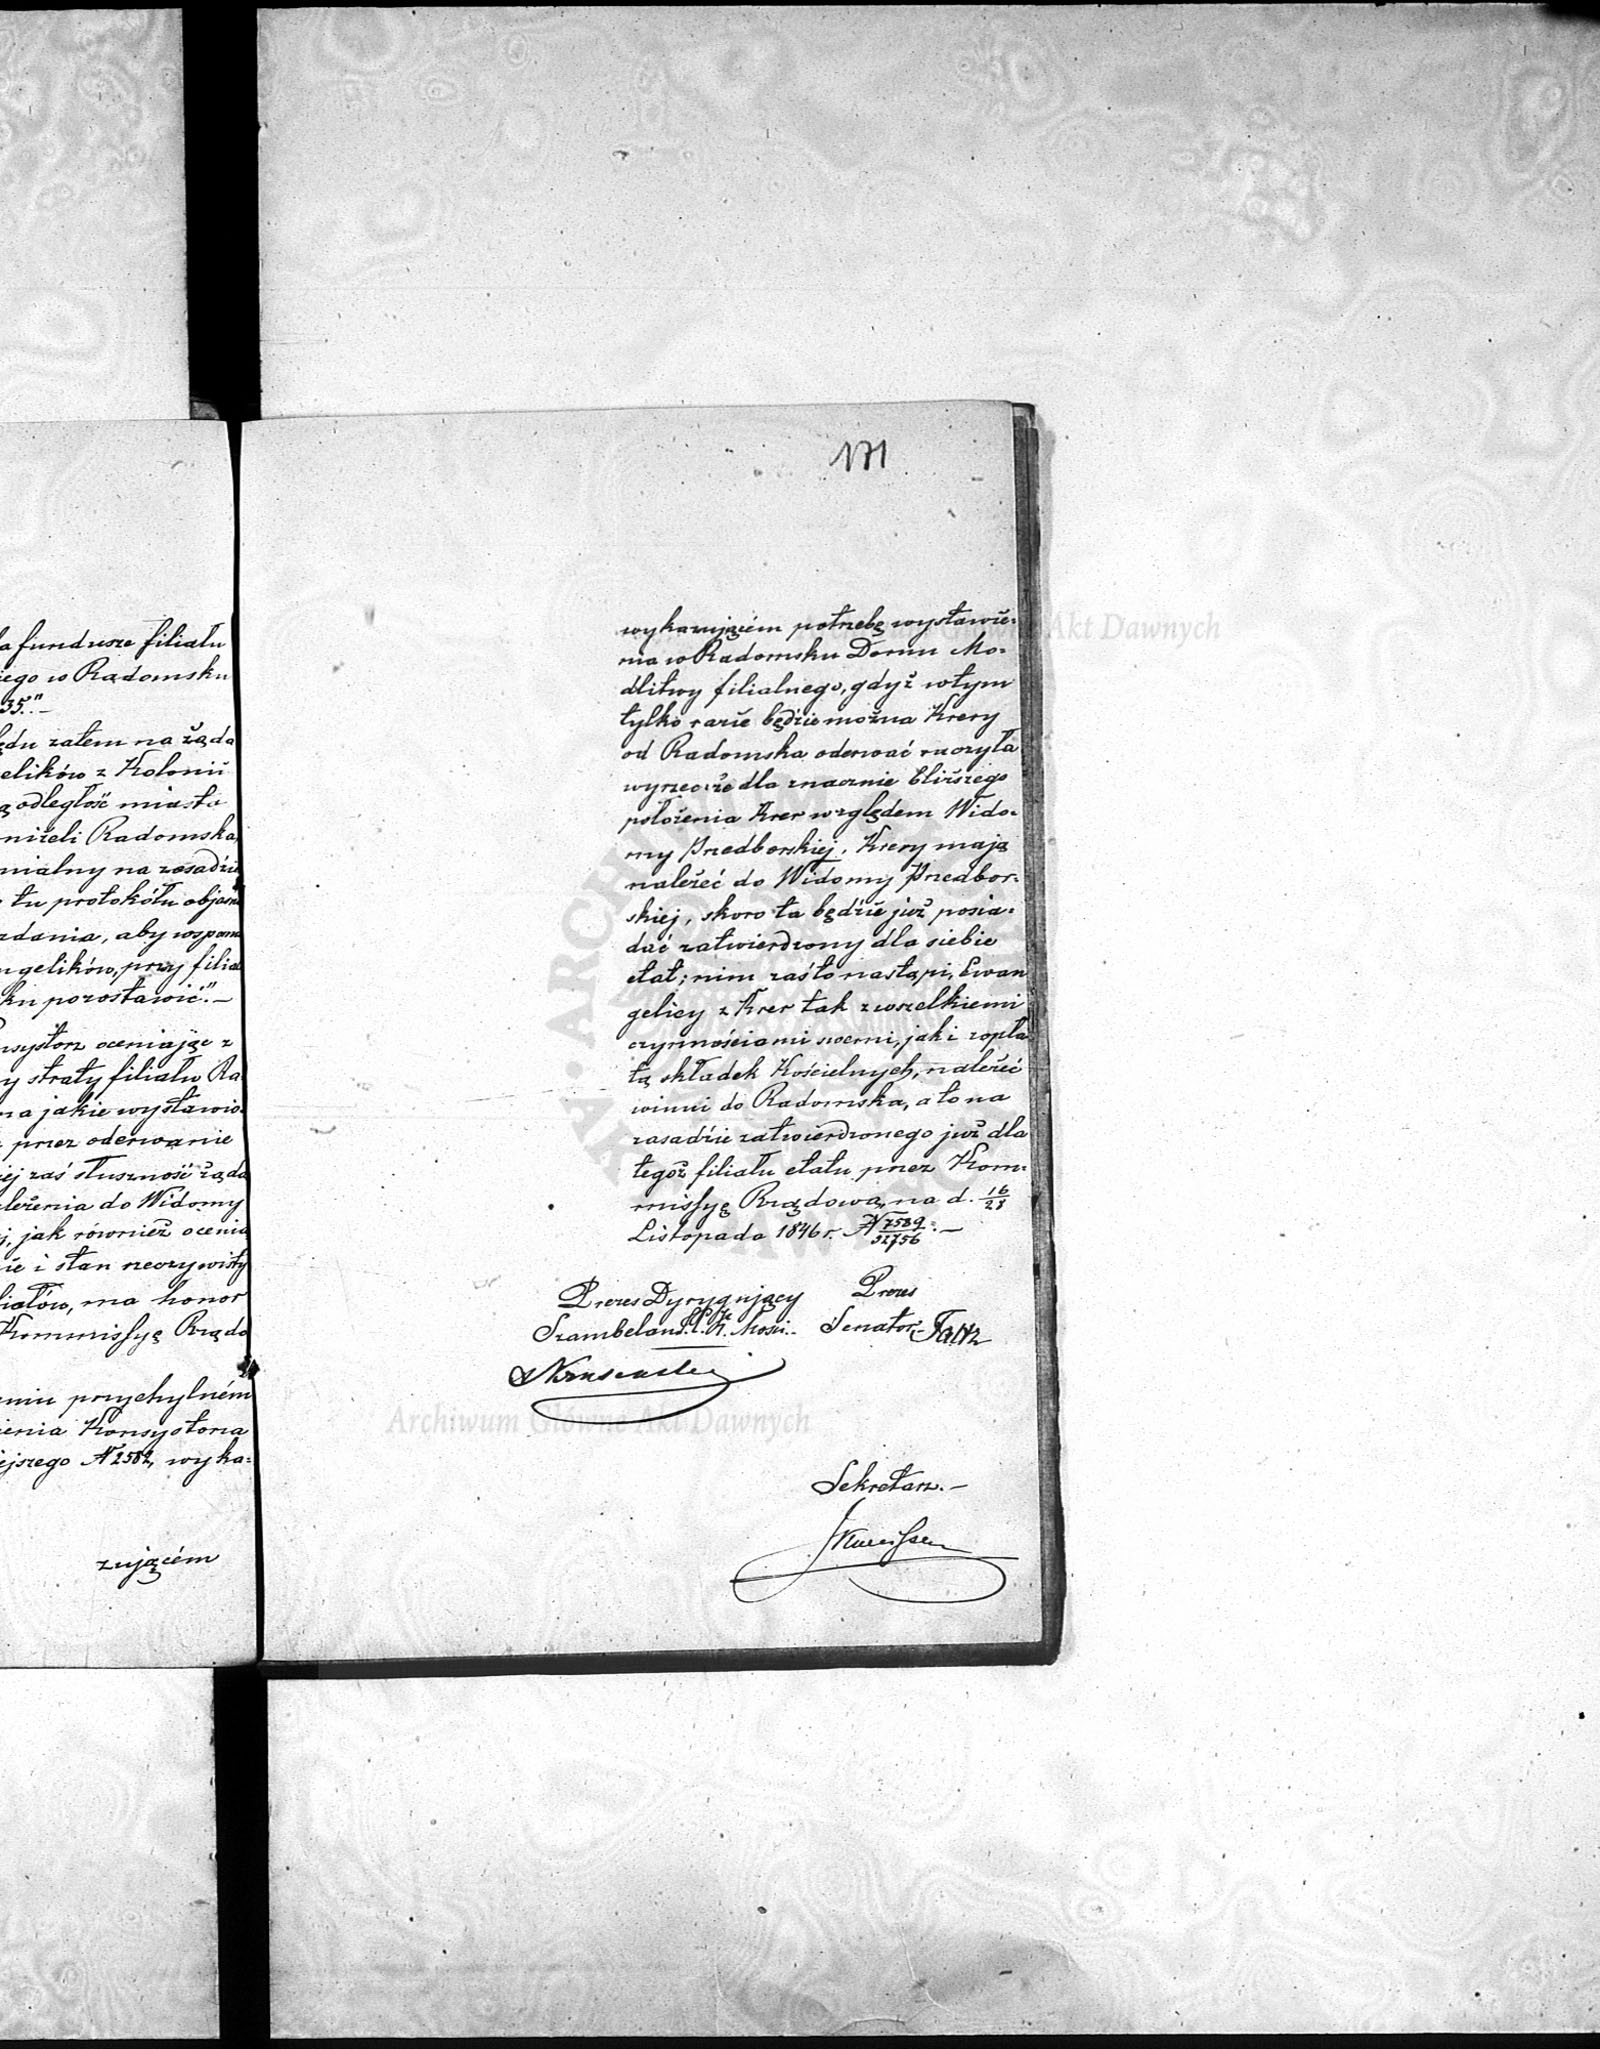 la fundusze filiału
iego w Radomsku
35."—
ędu zatem na żąda
elików z Kolonii
ą odległość miasta
niżeli Radomska,
mialny na zasadzie
tu protokółu objaśni
żdania, aby wspom
ngelików, przy filia
ku pozostawić."—
nsystorz oceniając z
y straty filiału Ra
na jakie wystawio
przez oderwanie
iej zaś słuszność żąda
leżenia do Widomy
j, jak również ocenia
ie i stan rzeczywisty
liałów, ma honor
Kommissyę Rządo
eniu przychylném
ienia Konsystorza
ejszego N 2582, wyka=
zującém
171
wykazującém potrzebę wystawie=
nia w Radomsku Domu Mo=
dlitwy filialnego, gdyż w tym
tylko razie będzie można Krery
od Radomska oderwać raczyła
wyrzec że dla znacznie bliższego
położenia Krer względem Wido=
my Przedborskiej, Krery mają
należeć do Widomy Przedbor=
skiej, skoro ta będzie już posia=
dać zatwierdzony dla siebie
etat; nim zaś to nastąpi, Ewan
gelicy z Krer tak z wszelkiemi
czynnościami swemi, jak i zopła
tą składek Kościelnych, należeć
winni do Radomska, a to na
zasadzie zatwierdzonego już dla
tegoż filiału etatu przez Kom=
missyę Rządową na d. 16/28
Listopada 1846 r. N 7589/32756.—
Prezes Dyrygujący Prezes
Szambelan J. C. K. Mości.. Senator.
Sekretarz.—
Archiwum Główne Akt Dawnych
Archiwum Główne Akt Dawnych